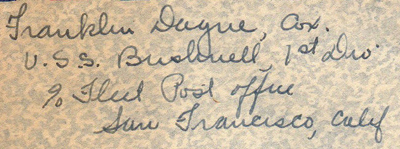 Franklin Dayne, Cox.
U.S.S. Bushnell, 1st Div.
% Fleet Post office
San Francisco, Calif